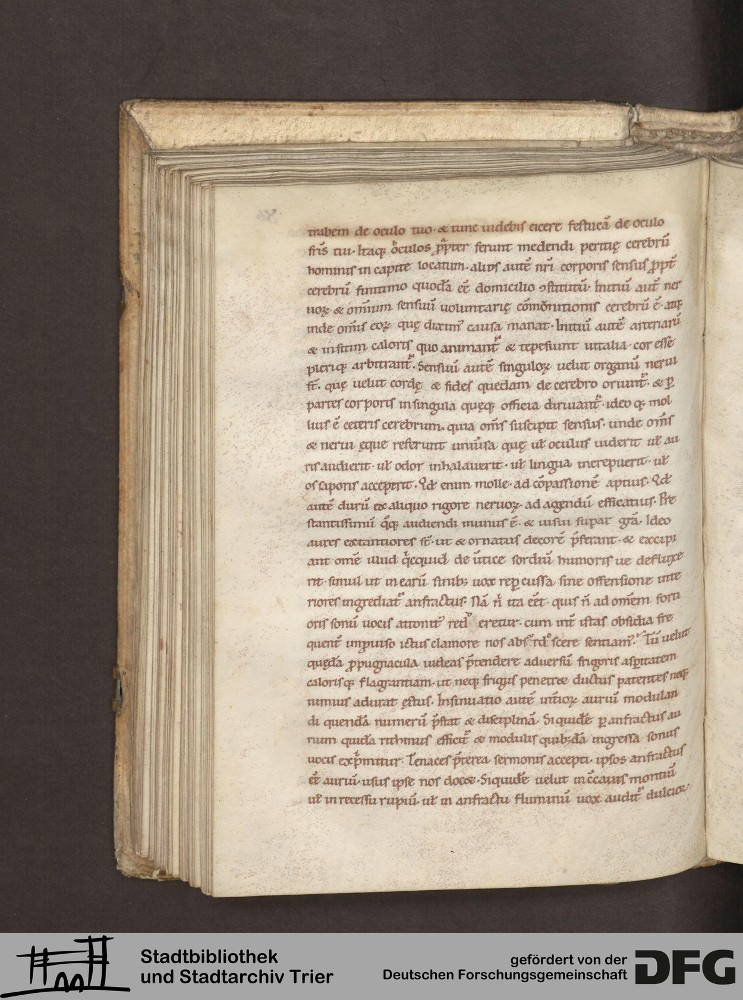 trabem de oculo tuo · & tunc uidebis eicere festucā de oculo
fr̄is tui · Itaq; oculos p̱pter ferunt medendi peritię cerebrū
hominis in capite locatum · aliis autē nr̄i corporis sensus p̱pt̄
cerebrū finitimo quodā ēē domicilio ꝯstitutū · Initiū aut̄ ner
uoꝝ & omnium sensuū uoluntarię cōmōnitionis cerebrū ē · atq;
inde om̄is eoꝝ quę diximꝰ causa manat · Initiū autē arteriarū
& insitim caloris quo animant᷑ & tepefiunt uitalia · cor esse
pleriq; arbitrant᷑ · Sensuū autē singuloꝝ uelut organū nerui
st̄ · quę uelut cordę & fides quedam de cerebro oriunt᷑ · & ꝑ
partes corporis in singula quęq; officia diriuant᷑ · ideo q; mol
lius ē ceteris cerebrum · quia om̄is suscipit sensus · unde om̄is
& nerui ęque referunt uniūsa quę uł oculus uiderit uł au
ris audierit · uł odor inhalauerit · uł lingua increpuerit · uł
os saporis acceperit · Qđ enim molle · ad cōpassionē aptius · Qđ
autē durū ex aliquo rigore neruoꝝ · ad agendū efficatius · Pre
stantissimū q̄q; audiendi munus ē · & uisui supat grā · Ideo
aures extantiores st̄ · ut & ornatus decorē p̄ferant · & excipi
ant omē illud q̇cquid de ūtice sordiū humoris ue defluxe
rit · simul ut in earū sinibꝫ uox repercussa sine offensione inte
riores ingrediat᷑ anfractus · Nā n̄ ita eēt · quis n̄ ad omēm forti
oris sonū uocis attonitꝰ red eretur · cum int̄ istas obsidia fre
quent̄ inpuiso ictus clamore nos scere sentiamꝰ · Tū uelut
quędā p̱pugnacula uideas p̄tendere aduersū frigoris asp̱itatem
calorisq; flagrantiam · ut neq; frigus penetret ductus patentes neq;
nimius adurat ęstus · Insinuatio autē int̄ioꝝ auriū modulan
di quendā numerū p̄stat & disciplinā · Siquidē ꝑ anfractus au
rium quidā rithmus efficit᷑ & modulis quibꝫdā ingressa sonus
uocis exp̄mitur · Tenaces p̄terea sermonis accepti · ipsos anfractus
ēē auriū · usus ipse nos docet · Siquidē uelut in cauis montiū
uł in recessu rupiū · uł in anfractu fluminū uox audit᷑ dulcior
Stadtbibliothek
und Stadtarchiv Trier
gefördert von der
Deutschen Forschungsgemeinschaft
DFG